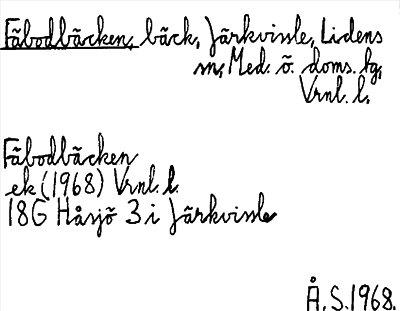 Fäbodbäcken, bäck, Järkvissle, Lidens
sn, Med. ö. doms. tg,
Vrnl. l.
Fäbodbäcken
ek (1968) Vrnl. l.
18G Håsjö 3 i Järkvissle
Å. S. 1968.